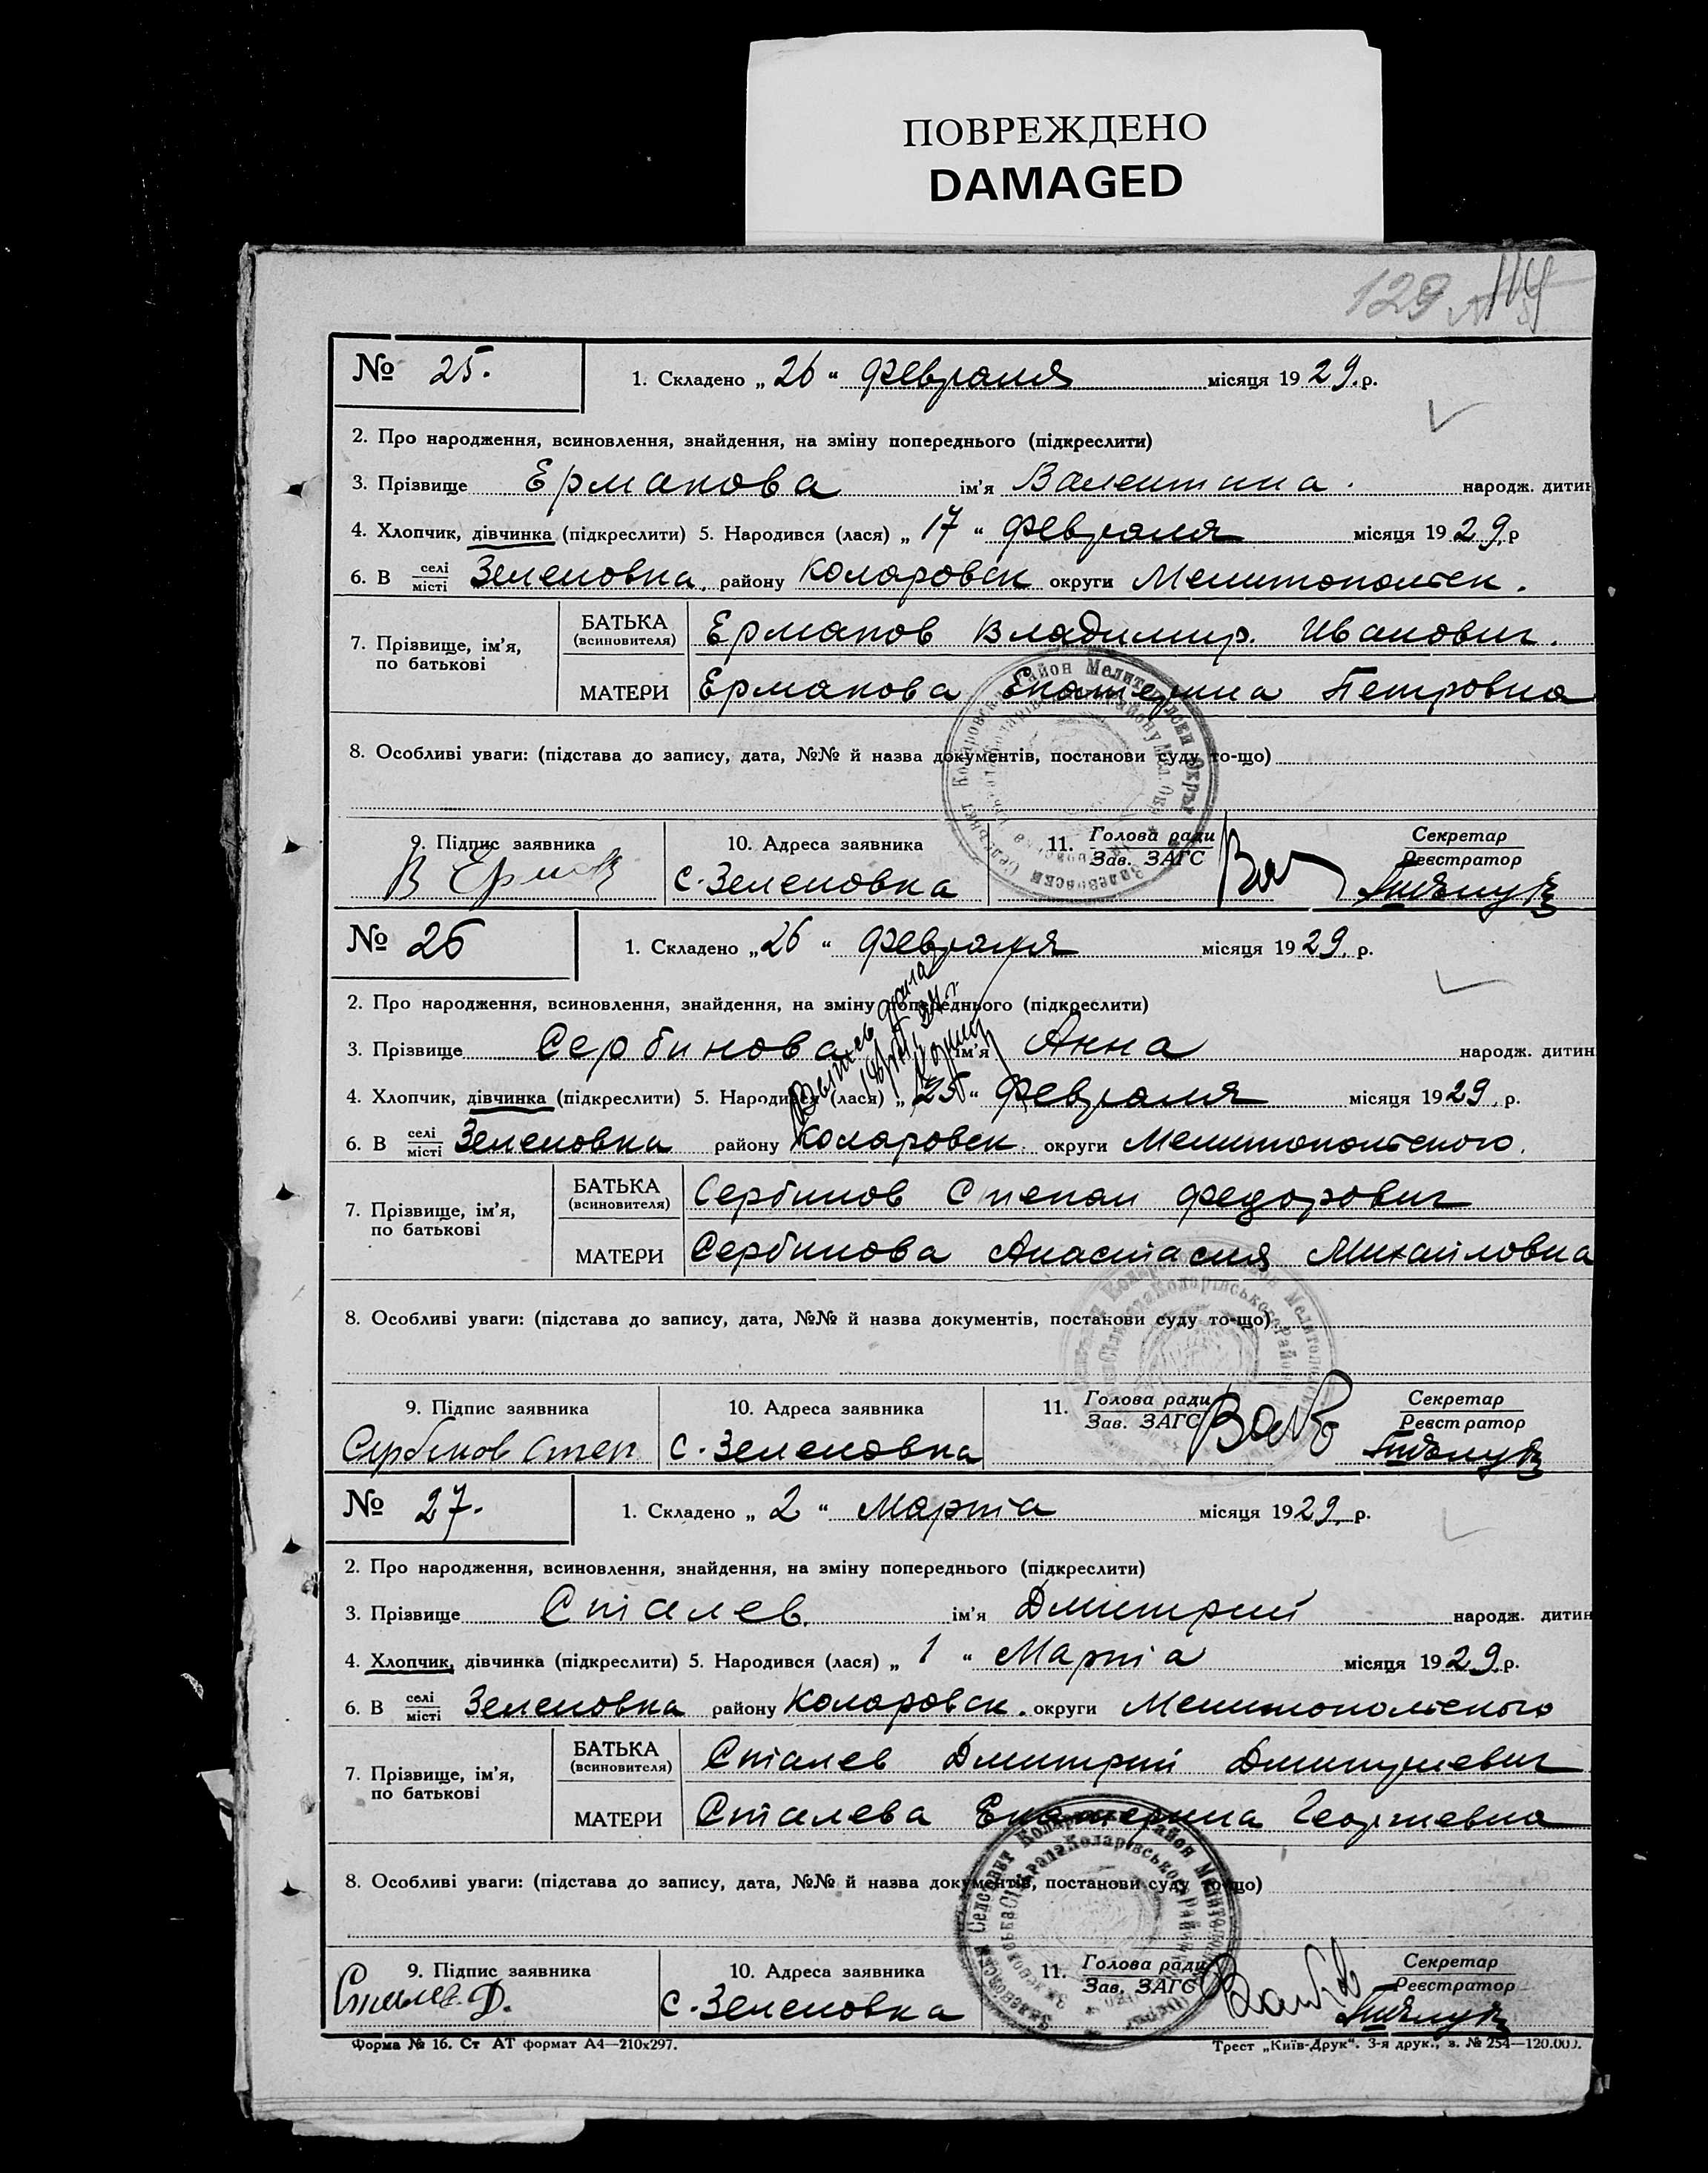 ПОВРЕЖДЕНО
DAMAGED
129
№ 25. 1. Складено „26“ февраля місяця 1929. р.
2. Про народження, всиновлення, знайдення, на зміну попереднього (підкреслити)
3. Прізвище Ермакова ім'я Валентина. народж. дитин
4. Хлопчик, дівчинка (підкреслити) 5. Народився (лася) „17“ февраля місяця 1929. р
6. В селі місті Зеленовка, району Коларовск округи Мелитопольск.
7. Прізвище, ім'я, по батькові
БАТЬКА (всиновителя) Ермаков Владимир. Иванович.
МАТЕРИ Ермакова Екатерина Петровна
8. Особливі уваги: (підстава до запису, дата, №№ й назва документів, постанови суду то-що)
9. Підпис заявника 10. Адреса заявника 11. Голова ради Зав. ЗАГС Секретар Реєстратор
с. Зеленовка
№ 26 1. Складено „26“ февраля місяця 1929. р.
2. Про народження, всиновлення, знайдення, на зміну попереднього (підкреслити)
3. Прізвище Сербинова ім'я Анна народж. дитин
4. Хлопчик, дівчинка (підкреслити) 5. Народився (лася) „25“ февраля місяця 1929. р.
6. В селі місті Зеленовка району Коларовск. округи Мелитопольского.
7. Прізвище, ім'я, по батькові
БАТЬКА (всиновителя) Сербинов Степан Федорович
МАТЕРИ Сербинова Анастасия Михайловна
8. Особливі уваги: (підстава до запису, дата, №№ й назва документів, постанови суду то-що)
9. Підпис заявника 10. Адреса заявника 11. Голова ради Зав. ЗАГС Секретар Реєстратор
Сербінов Степ с. Зеленовка
№ 27. 1. Складено „2“ Марта місяця 1929. р.
2. Про народження, всиновлення, знайдення, на зміну попереднього (підкреслити)
3. Прізвище Сталев. ім'я Дмитрий народж. дитин
4. Хлопчик, дівчинка (підкреслити) 5. Народився (лася) „1“ Марта місяця 1929. р.
6. В селі місті Зеленовка району Коларовск. округи Мелитопольского
7. Прізвище, ім'я, по батькові
БАТЬКА (всиновителя) Сталев Дмитрий Дмитриевич
МАТЕРИ Сталева Екатерина Георгиевна
8. Особливі уваги: (підстава до запису, дата, №№ й назва документів, постанови суду то-що)
9. Підпис заявника 10. Адреса заявника 11. Голова ради Зав. ЗАГС Секретар Реєстратор
Сталев Д. с. Зеленовка
Форма № 16. Ст АТ формат А4—210х297. Трест „Київ-Друк“. 3-я друк., з. № 254—120.000.